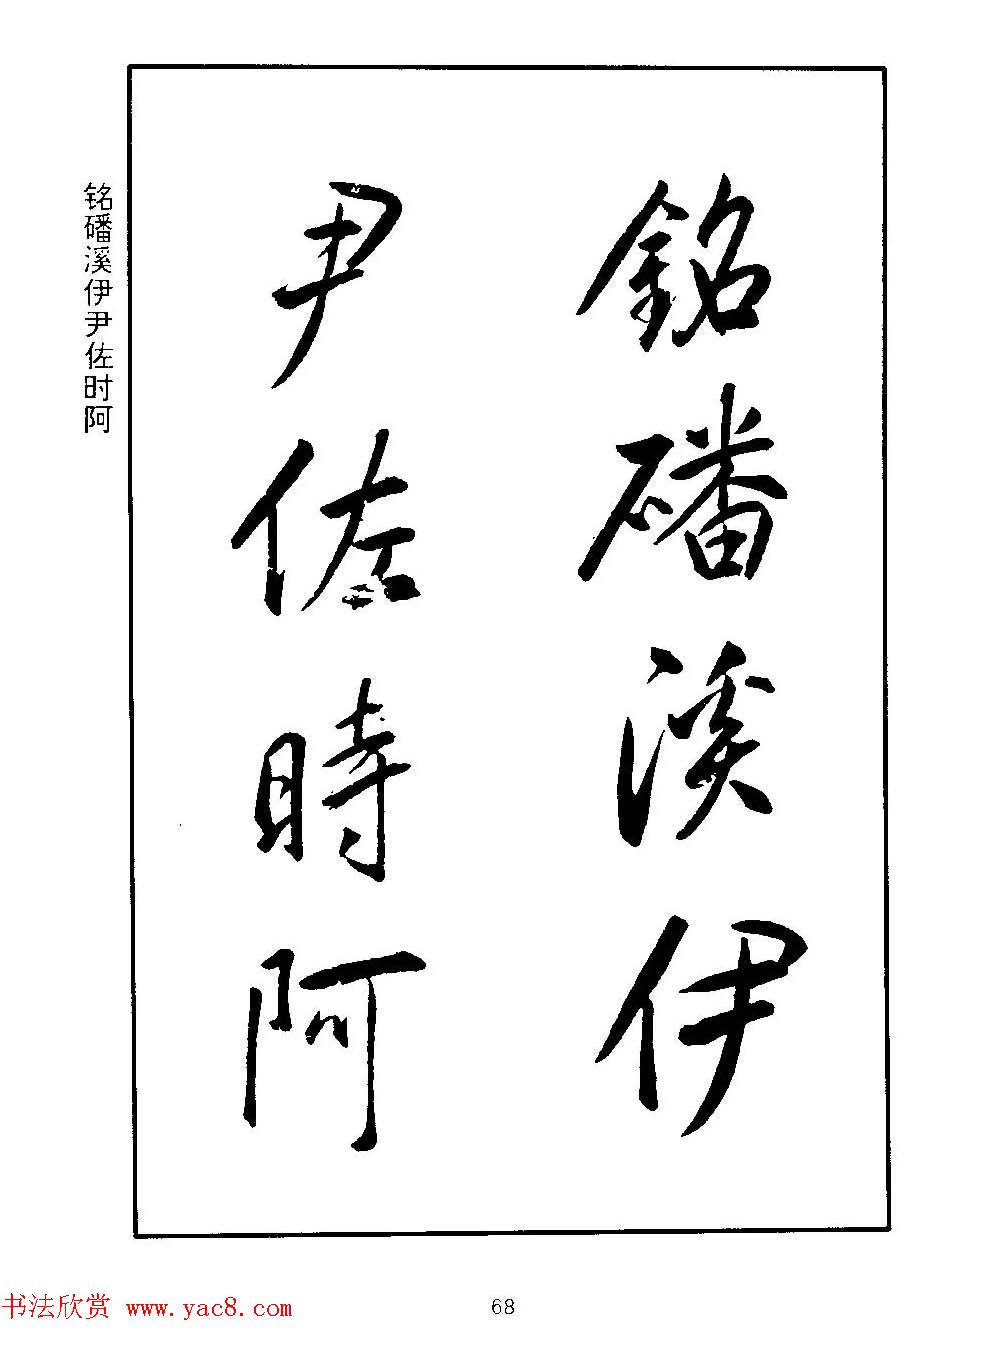 銘磻溪伊
尹佐時阿
铭磻溪伊尹佐时阿
书法欣赏 www.yac8.com
68